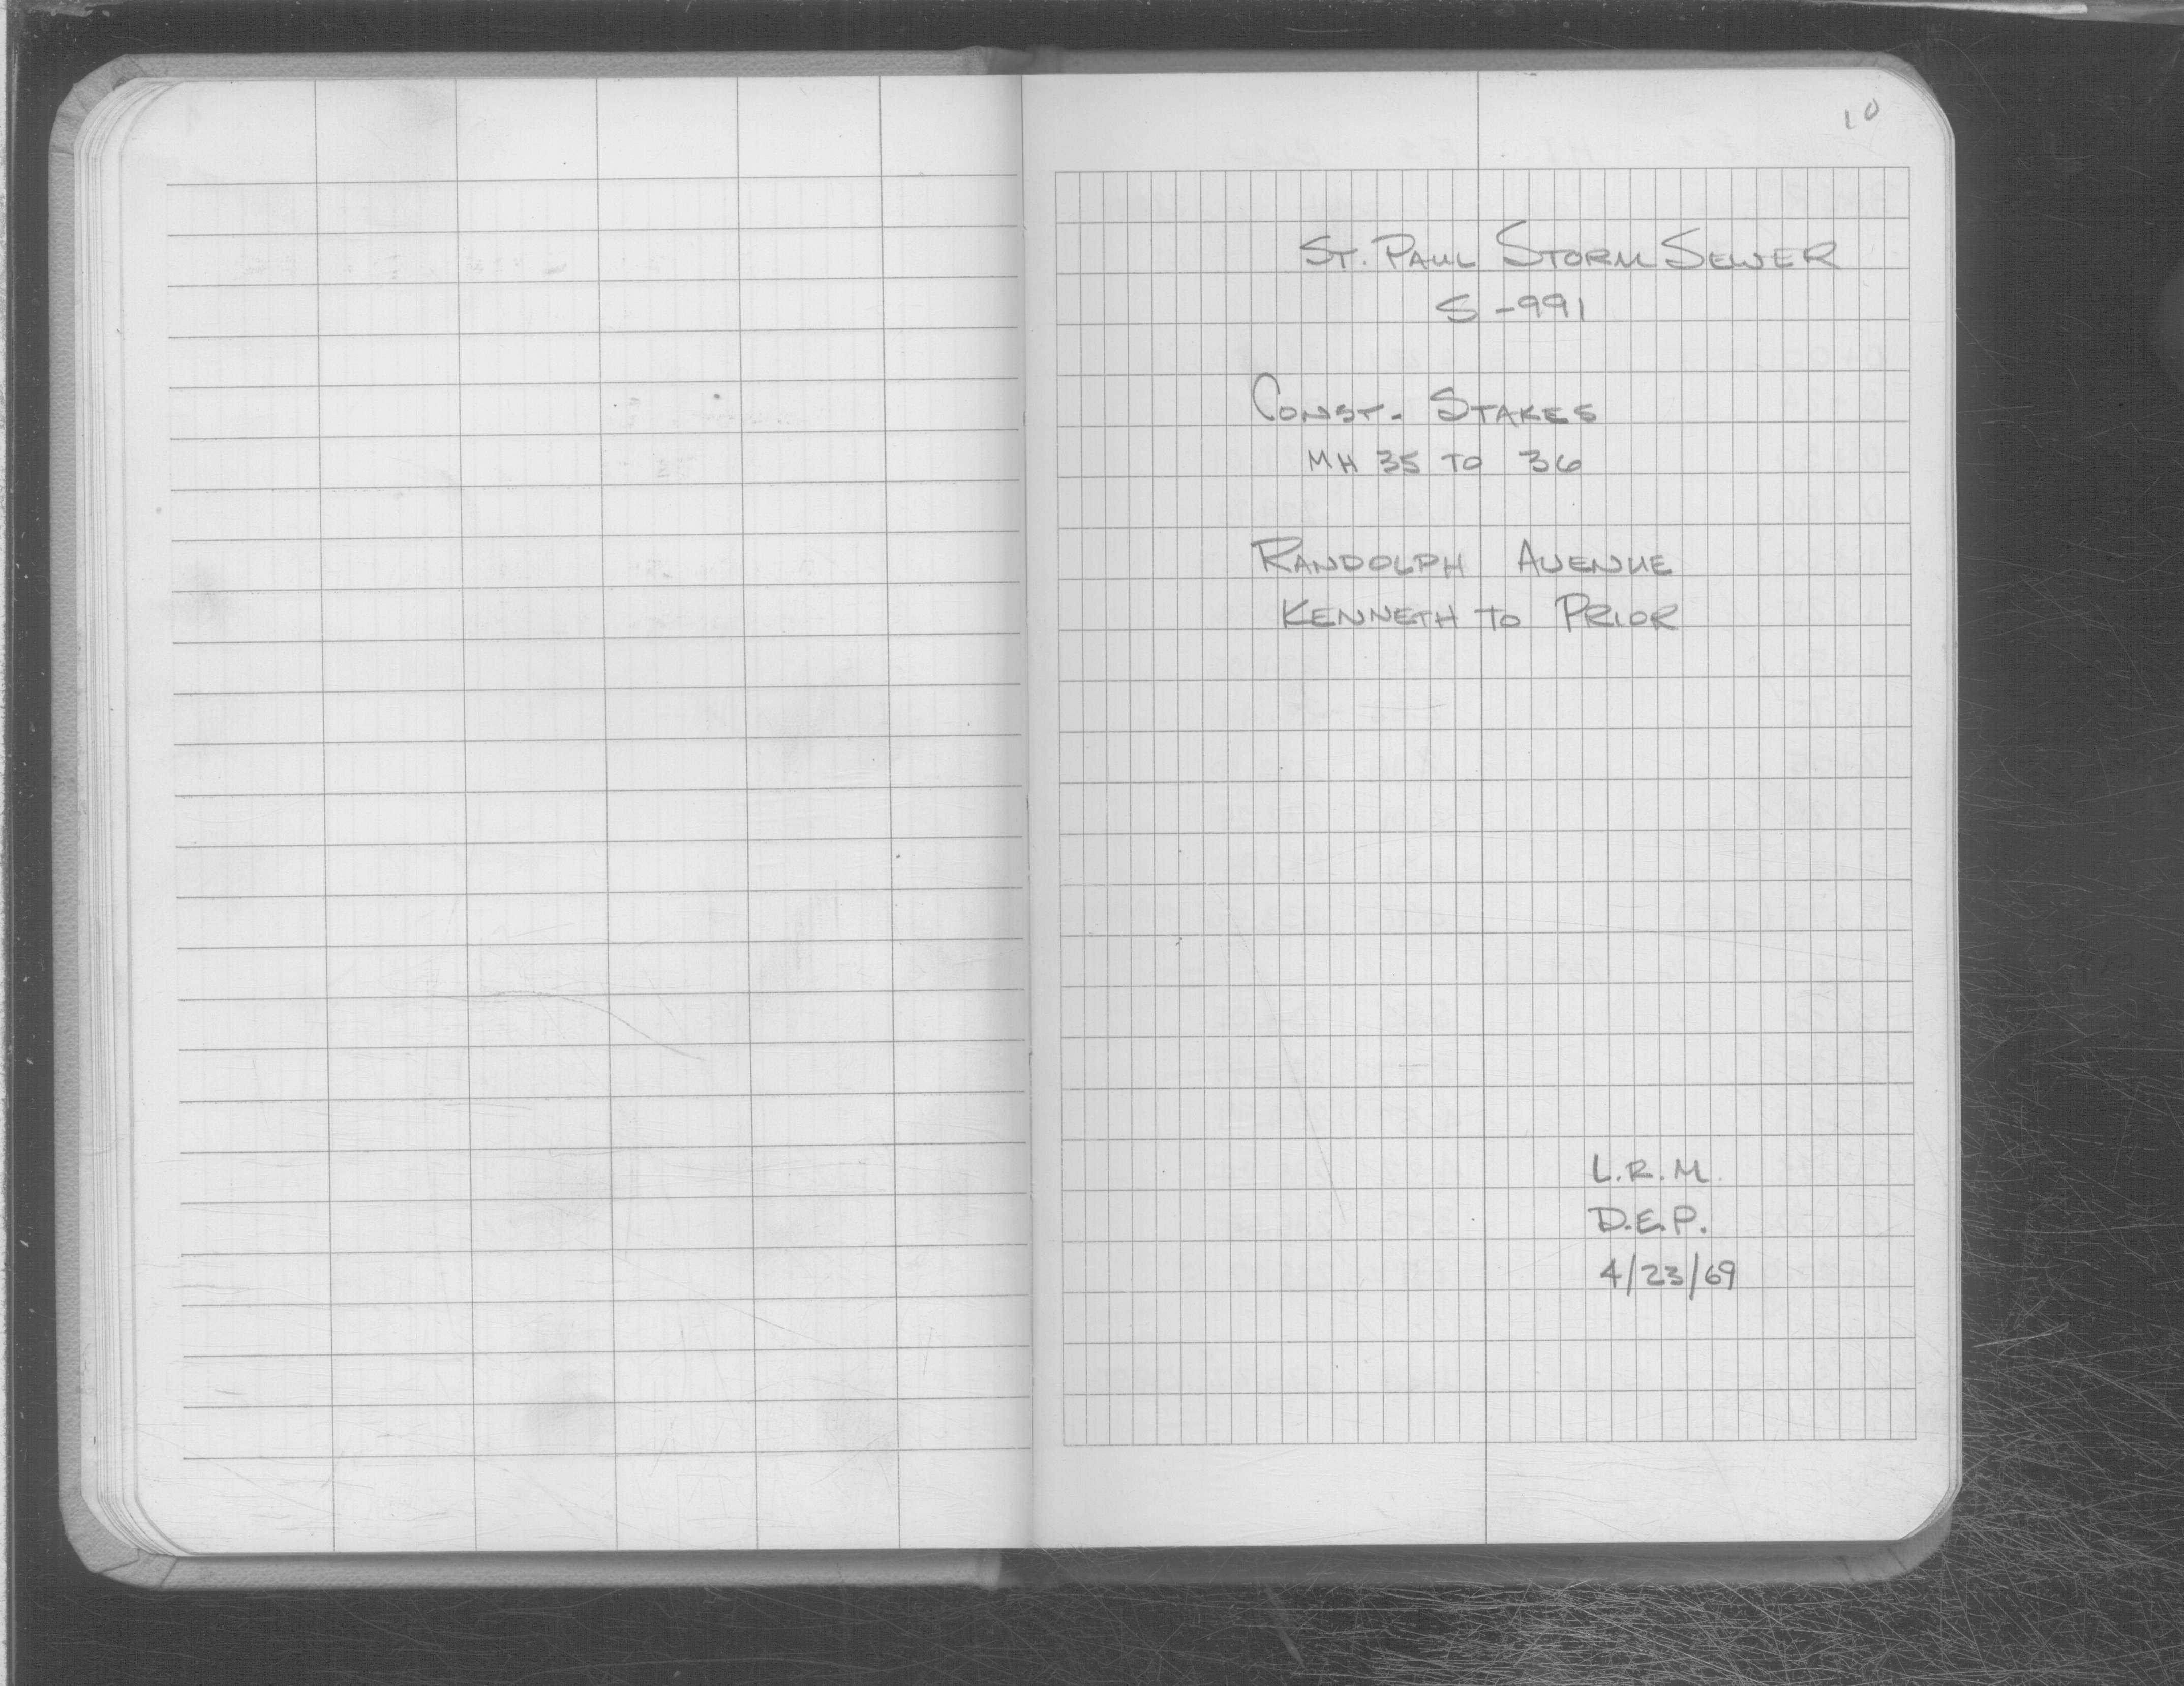 10
St. Paul Storm Sewer
S-991
Const. Stakes
MH 35 to 36
Randolph Avenue
Kenneth to Prior
L.R.M.
D.E.P.
4/23/69